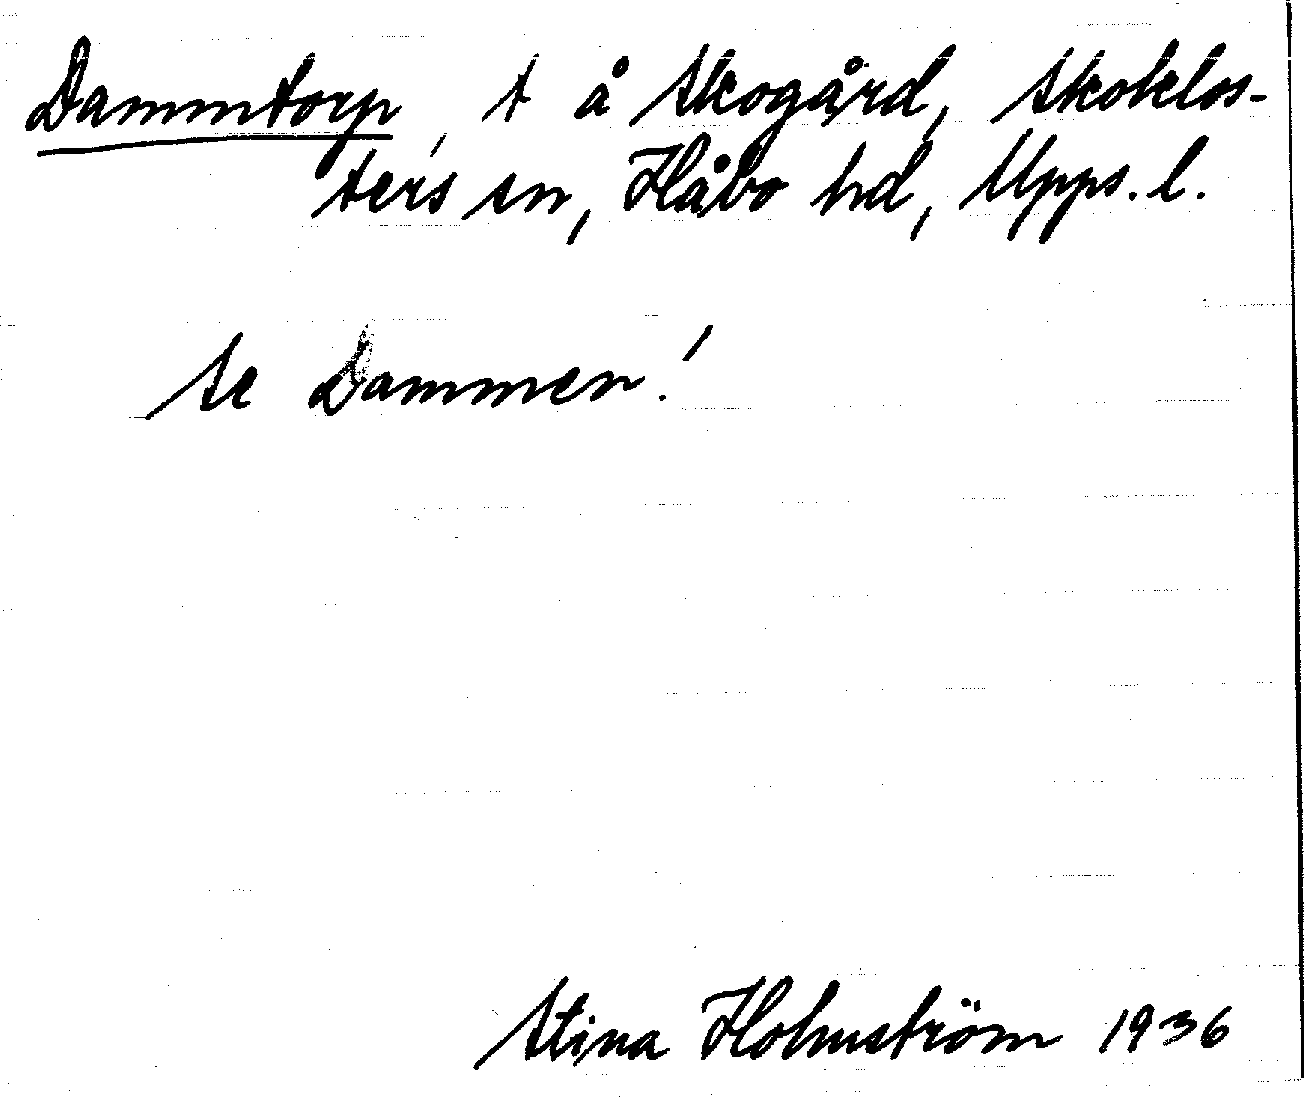 Dammtorp, t å Skogård, Skoklos-
ters sn, Håbo hd, Upps. l.
Se Dammen!
Stina Holmström 1936